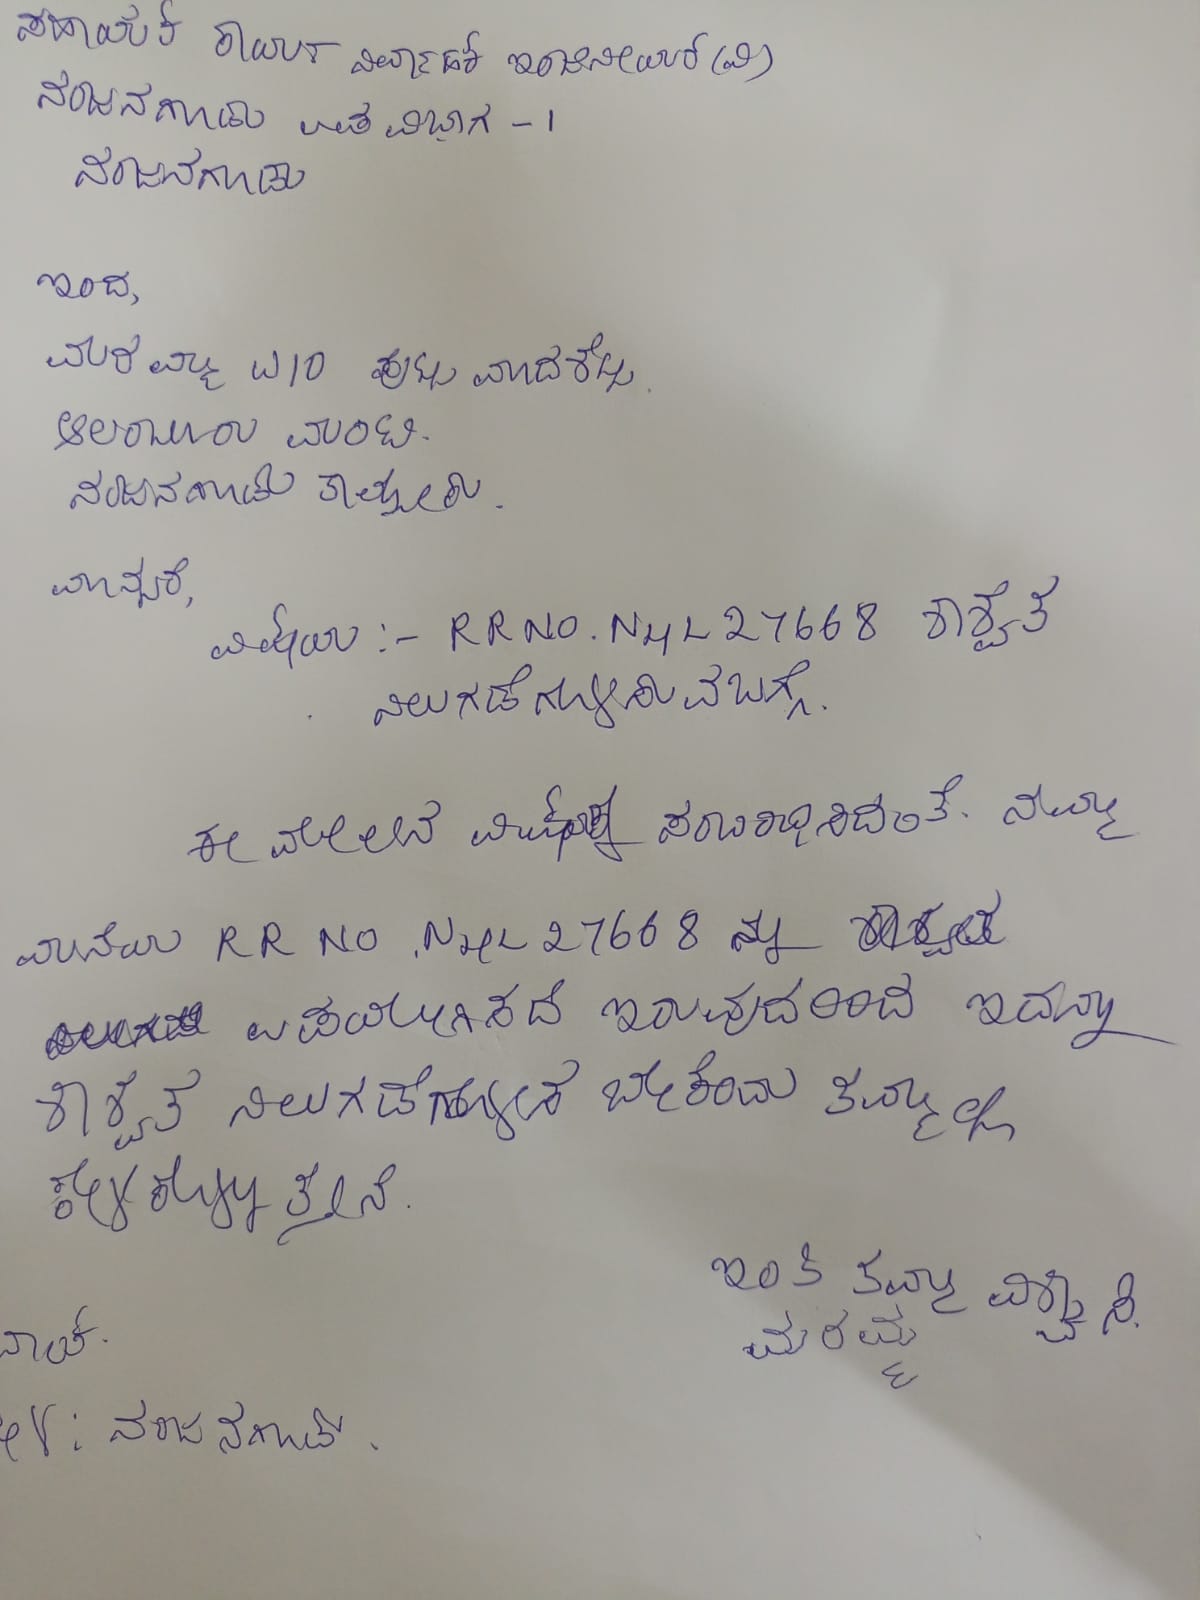 ಸಹಾಯಕ ಕಾರ್ಯ ನಿರ್ವಾಹಕ ಇಂಜಿನೀಯರ್ (ವಿ)
ನಂಜನಗೂಡು ಉಪ ವಿಭಾಗ - 1
ನಂಜನಗೂಡು
ಇಂದ,
ಮರಮ್ಮ W/O ಪುಟ್ಟಮಾದಶೆಟ್ಟಿ.
ಆಲಂಬೂರು ಮಂಟಿ.
ನಂಜನಗೂಡು ತಾಲ್ಲೂಕು.
ಮಾನ್ಯರೆ,
ವಿಷಯ :- RRNO. NHL 27668 ಶಾಶ್ವತ
ನಿಲುಗಡೆಗೊಳಿಸುವ ಬಗ್ಗೆ.
ಈ ಮೇಲಿನ ಸಂಬಂಧಿಸಿದಂತೆ. ನಮ್ಮ
ಮನೆಯ RR NO. NHL 27668 ನ್ನು
ಉಪಯೋಗಿಸದೆ ಇರುವುದರಿಂದ ಇದನ್ನು
ಶಾಶ್ವತ ನಿಲುಗಡೆಗೊಳಿಸ ಬೇಕೆಂದು ತಮ್ಮಲ್ಲಿ
ಕೇಳಿಕೊಳ್ಳುತ್ತೇನೆ.
ಇಂತಿ ತಮ್ಮ ವಿಶ್ವಾಸಿ.
ಮರಮ್ಮ
ನಂಜನಗೂಡು.